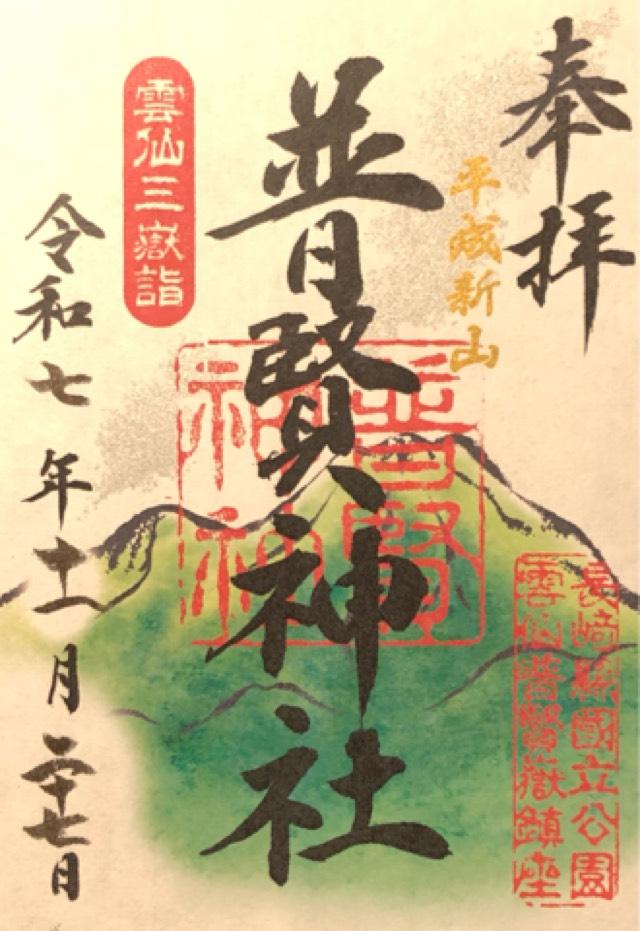 奉拝
平成新山
普賢神社
普賢神社
長崎縣國立公園
雲仙普賢嶽鎮座
雲仙三嶽詣
令和七年十一月二十七日